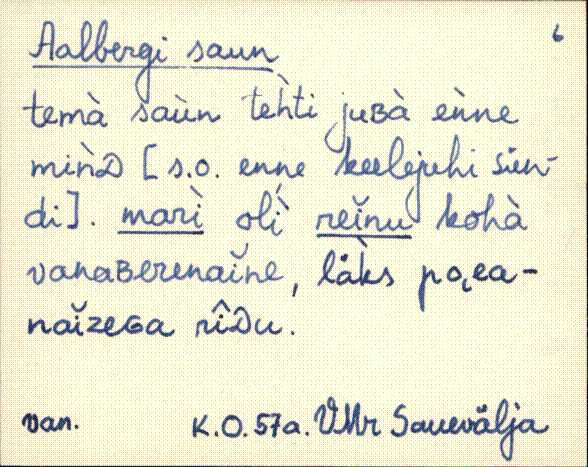 6
Aalbergi saun
temà saùn tehti juʙà eǹne
miǹᴅ [s.o. enne keelejuhi sün-
di]. marì olì reĭnu kohà
vanaʙerenaĭne, läks poea-
naĭzeɢa rîᴅu.
van. K.O. 57a. VMr Sauevälja